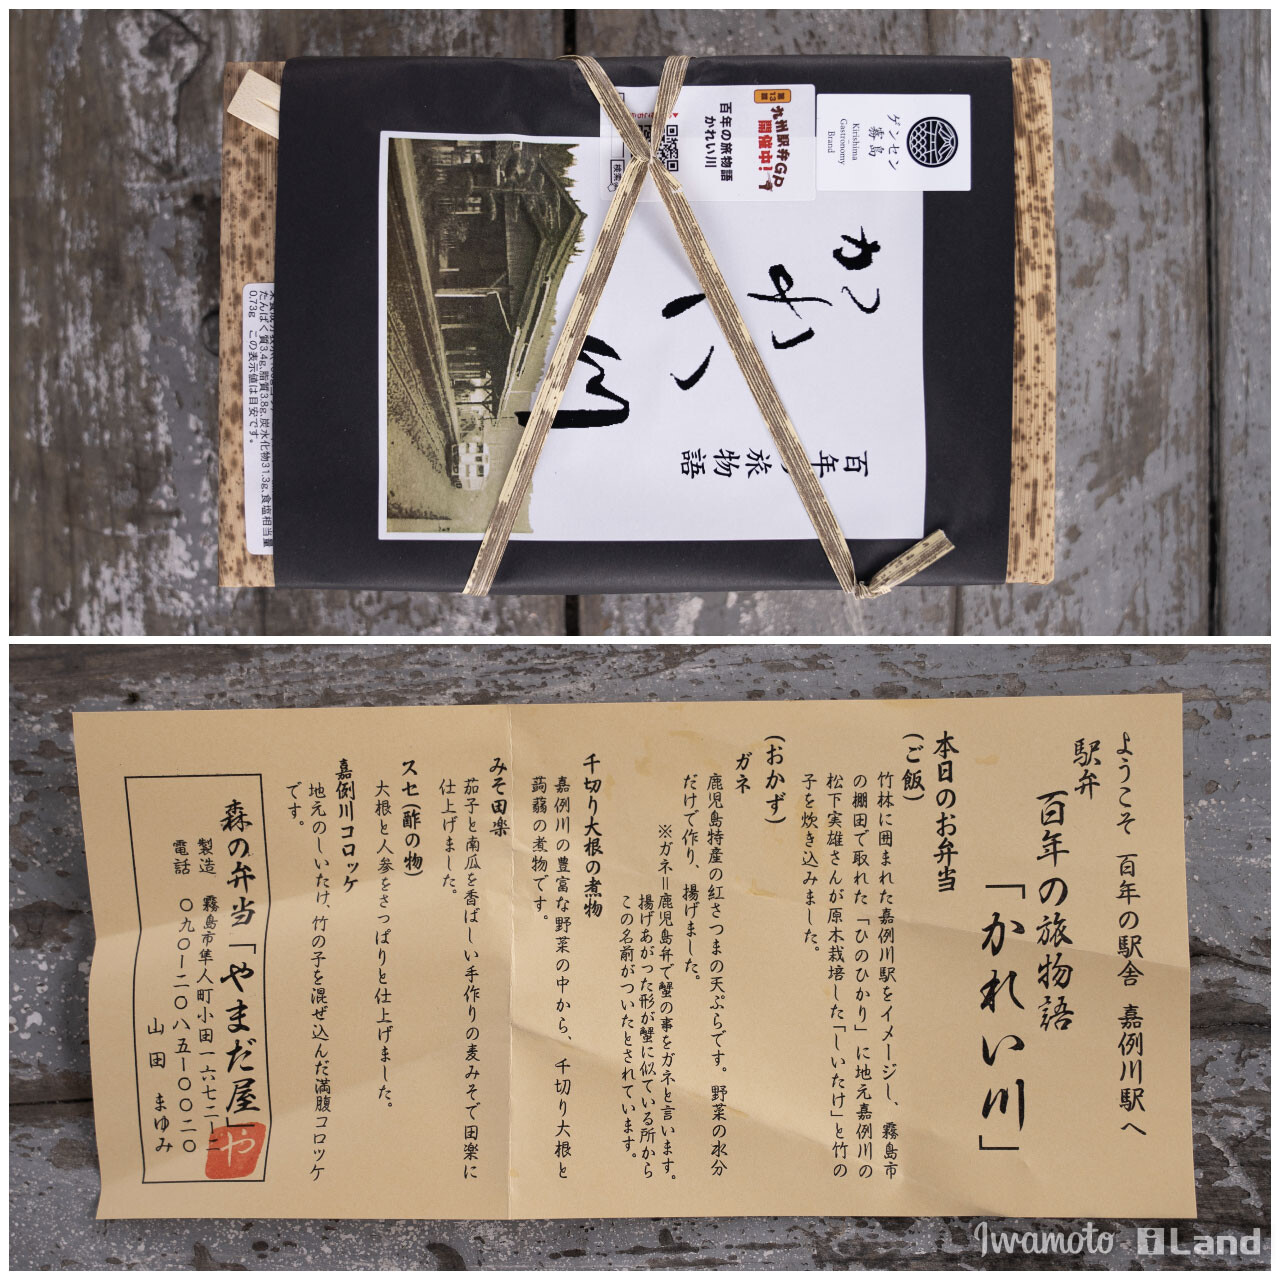 ゲンセン
霧島
Kirishima
Gastronomy
Brand
第13回
九州駅弁GP
開催中!
百年の旅物語
かれい川
検索
かれい川
百年の旅物語
たんぱく質3.4g、脂質3.8g、炭水化物31.3g、食塩相当量
0.73g この表示値は目安です。
ようこそ 百年の駅舎 嘉例川駅へ
駅弁
百年の旅物語
「かれい川」
本日のお弁当
(ご飯)
竹林に囲まれた嘉例川駅をイメージし、霧島市
の棚田で取れた「ひのひかり」に地元嘉例川の
松下実雄さんが原木栽培した「しいたけ」と竹の
子を炊き込みました。
(おかず)
ガネ
鹿児島特産の紅さつまの天ぷらです。野菜の水分
だけで作り、揚げました。
※ガネ=鹿児島弁で蟹の事をガネと言います。
揚げあがった形が蟹に似ている所から
この名前がついたとされています。
千切り大根の煮物
嘉例川の豊富な野菜の中から、千切り大根と
蒟蒻の煮物です。
みそ田楽
茄子と南瓜を香ばしい手作りの麦みそで田楽に
仕上げました。
スセ(酢の物)
大根と人参をさっぱりと仕上げました。
嘉例川コロッケ
地元のしいたけ、竹の子を混ぜ込んだ満腹コロッケ
です。
森の弁当「やまだ屋」
や
製造 霧島市隼人町小田一六七二ー二
電話 〇九〇ー二〇八五ー〇〇二〇
山田 まゆみ
Iwamoto iLand